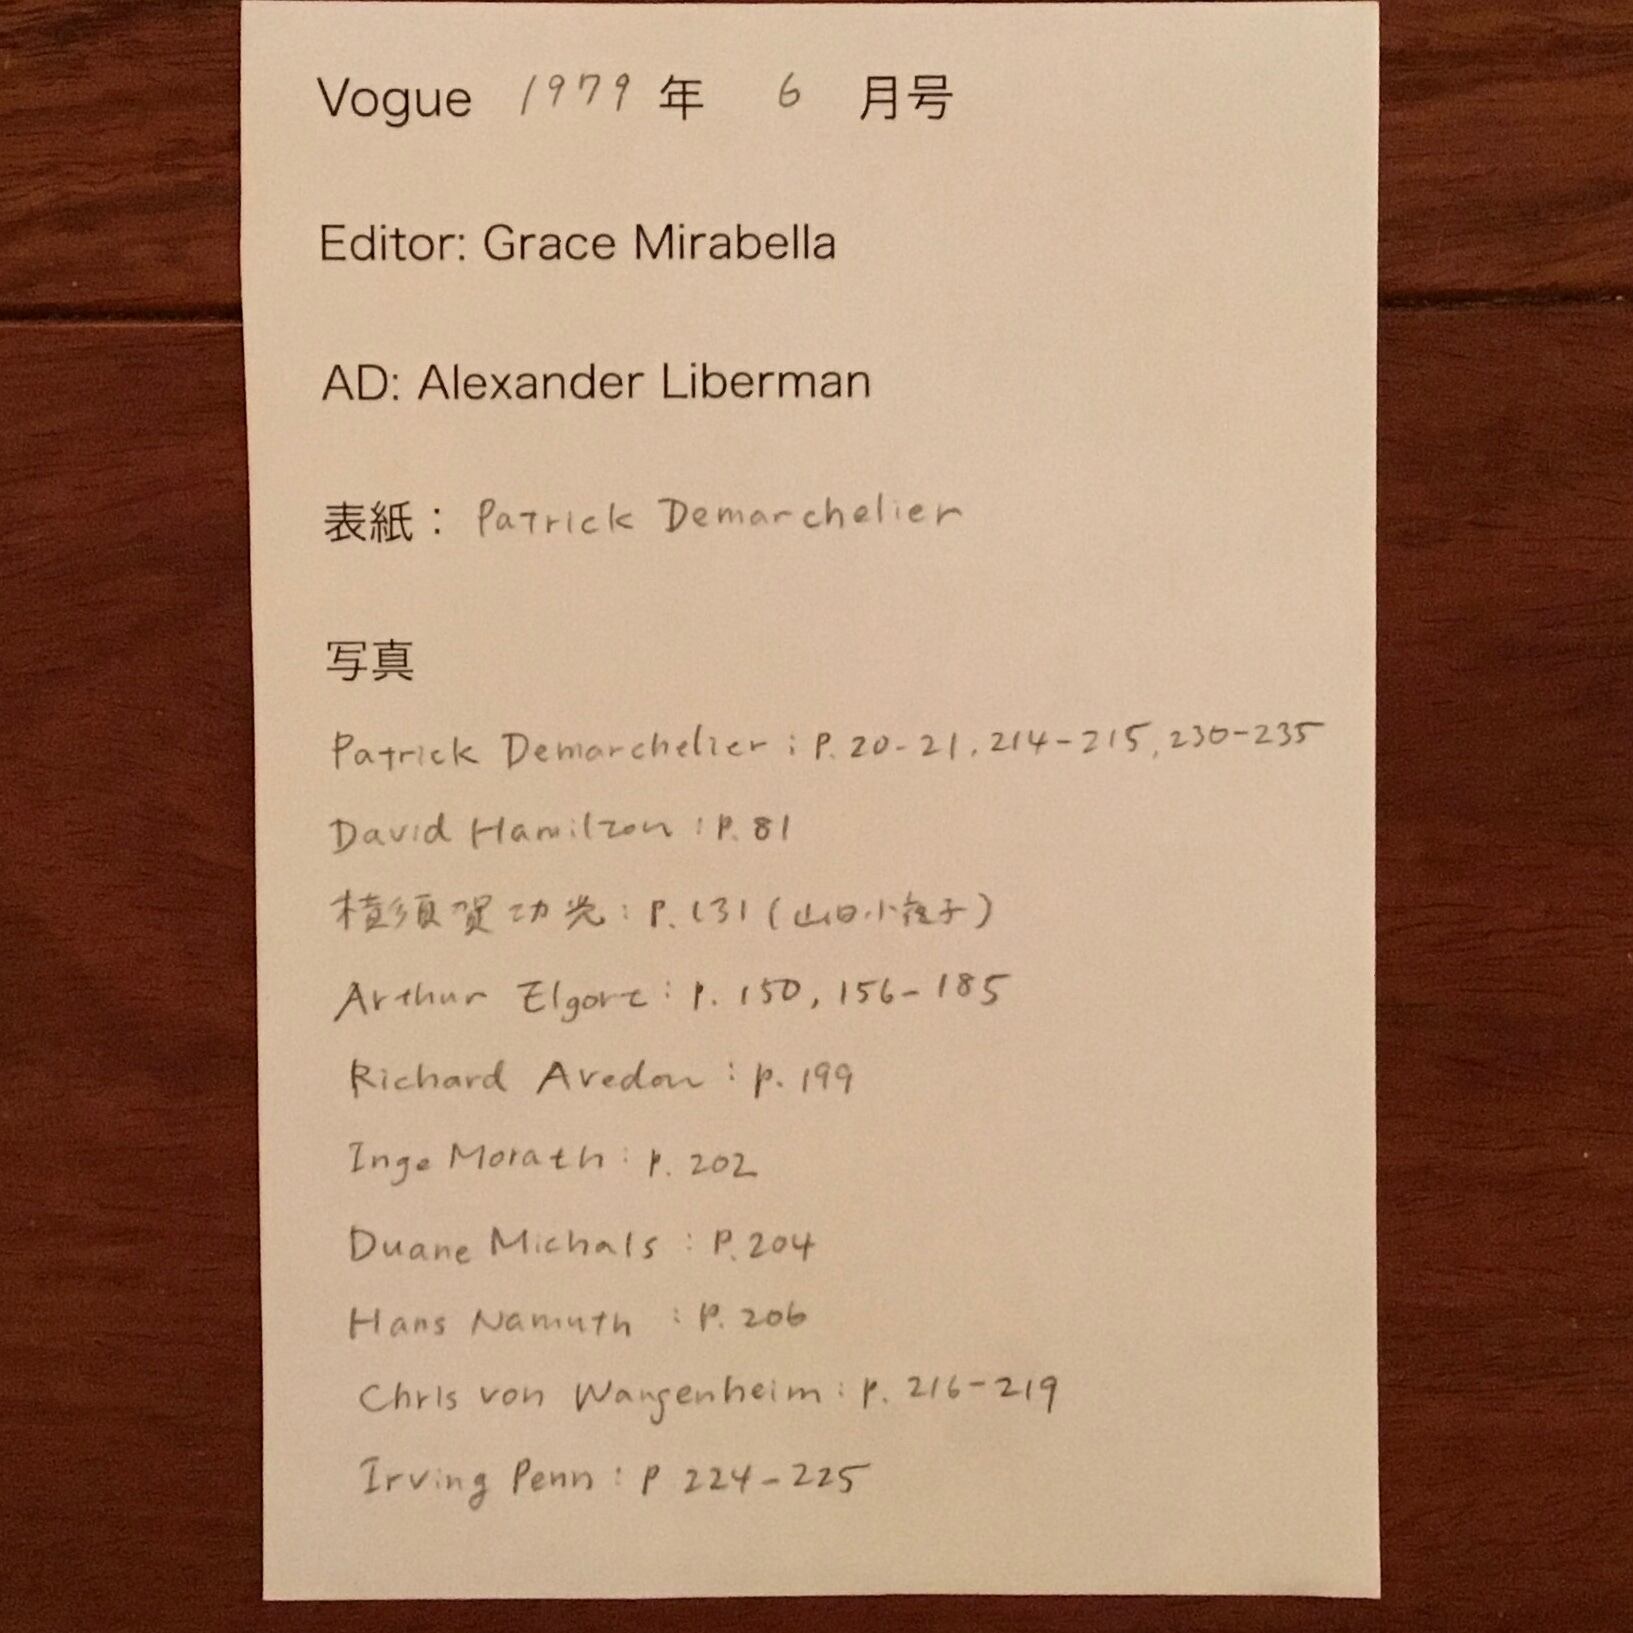 Vogue 1979 年 6 月号
Editor: Grace Mirabella
AD: Alexander Liberman
表紙： Patrick Demarchelier
写真
Patrick Demarchelier : P. 20-21, 214-215, 230-235
David Hamilton : P. 81
横須賀功光 : P. 131 (山口小夜子)
Arthur Elgort : P. 150, 156-185
Richard Avedon : p. 199
Inge Morath : P. 202
Duane Michals : P. 204
Hans Namuth : P. 206
Chris von Wangenheim : P. 216-219
Irving Penn : P 224-225